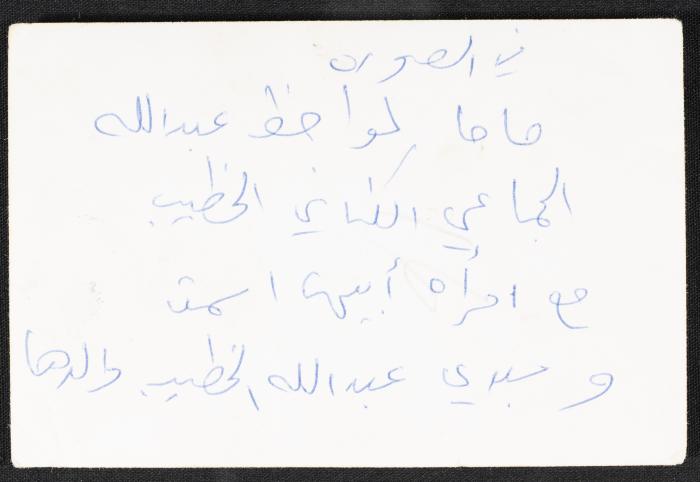 في الصوره
ماما لواحظ عبدالله
الجماعي الكناني الخطيب
مع امرأه أبيها اسمت
و جدي عبدالله الخطيب والدها